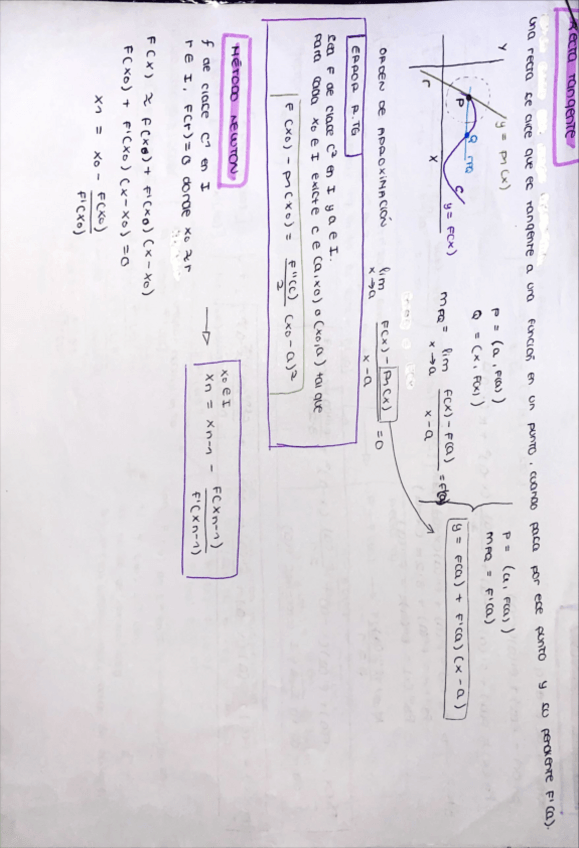 RECTA TANGENTE
una recta se dice que es tangente a una función en un punto, cuando pasa por ese punto y su pendiente F'(a).
Y
y = p1(x)
P
Q
r
C
y = F(x)
x
P = (a, F(a))
Q = (x, F(x))
mPQ = lim x→a F(x) - F(a) / x - a = F'(a)
P = (a, F(a))
mPQ = F'(a)
y = F(a) + F'(a) (x - a)
ORDEN DE APROXIMACIÓN
lim x→a F(x) - p1(x) / x - a = 0
ERROR R.TG
sea F de clase C² en I y a ∈ I.
para cada x0 ∈ I existe c ∈ (a, x0) o (x0, a) tal que
F(x0) - p1(x0) = F''(c) / 2 (x0 - a)²
MÉTODO NEWTON
f de clase C² en I
r ∈ I, F(r) = 0 donde x0 ≈ r
F(x) ≈ F(x0) + F'(x0) (x - x0)
F(x0) + F'(x0) (x - x0) = 0
x1 = x0 - F(x0) / F'(x0)
x0 ∈ I
xn = xn-1 - F(xn-1) / F'(xn-1)